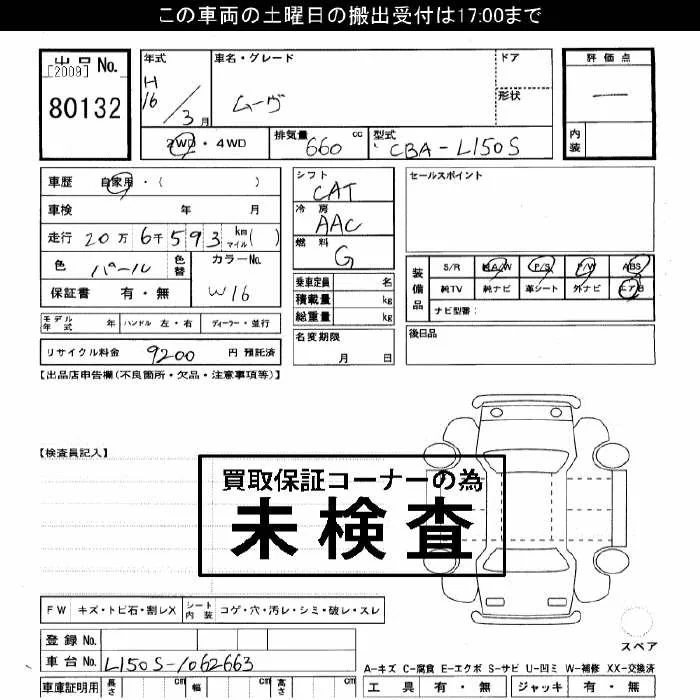 この車両の土曜日の搬出受付は17:00まで
出品 No.
[2009]
80132
年式
H
16 / 3 月
車名・グレード
ムーヴ
ドア
形状
評価点
—
内装
2WD・4WD
排気量 660 cc
型式 CBA-L150S
車歴 自家用・( )
車検 年 月
走行 20万 6千 593 km マイル ( )
色 パール 色替
カラーNo. W16
保証書 有・無
シフト CAT
冷房 AAC
燃料 G
乗車定員 名
積載量 kg
総重量 kg
セールスポイント
装備品
S/R 純A/W P/S P/W ABS
純TV 純ナビ 革シート 外ナビ エアB
ナビ型番:
モデル年式 年 ハンドル 左・右 ディーラー・並行
リサイクル料金 9200 円 預託済
名変期限 月 日
後日品
【出品店申告欄(不良箇所・欠品・注意事項等)】
【検査員記入】
買取保証コーナーの為
未検査
FW キズ・トビ石・割レX
シート内装 コゲ・穴・汚レ・シミ・破レ・スレ
スペア
登録 No.
車台 No. L150S-1062663
A-キズ C-腐食 E-エクボ S-サビ U-凹ミ W-補修 XX-交換済
車庫証明用 長さ cm 幅 cm 高さ cm
工具 有・無 ジャッキ 有・無